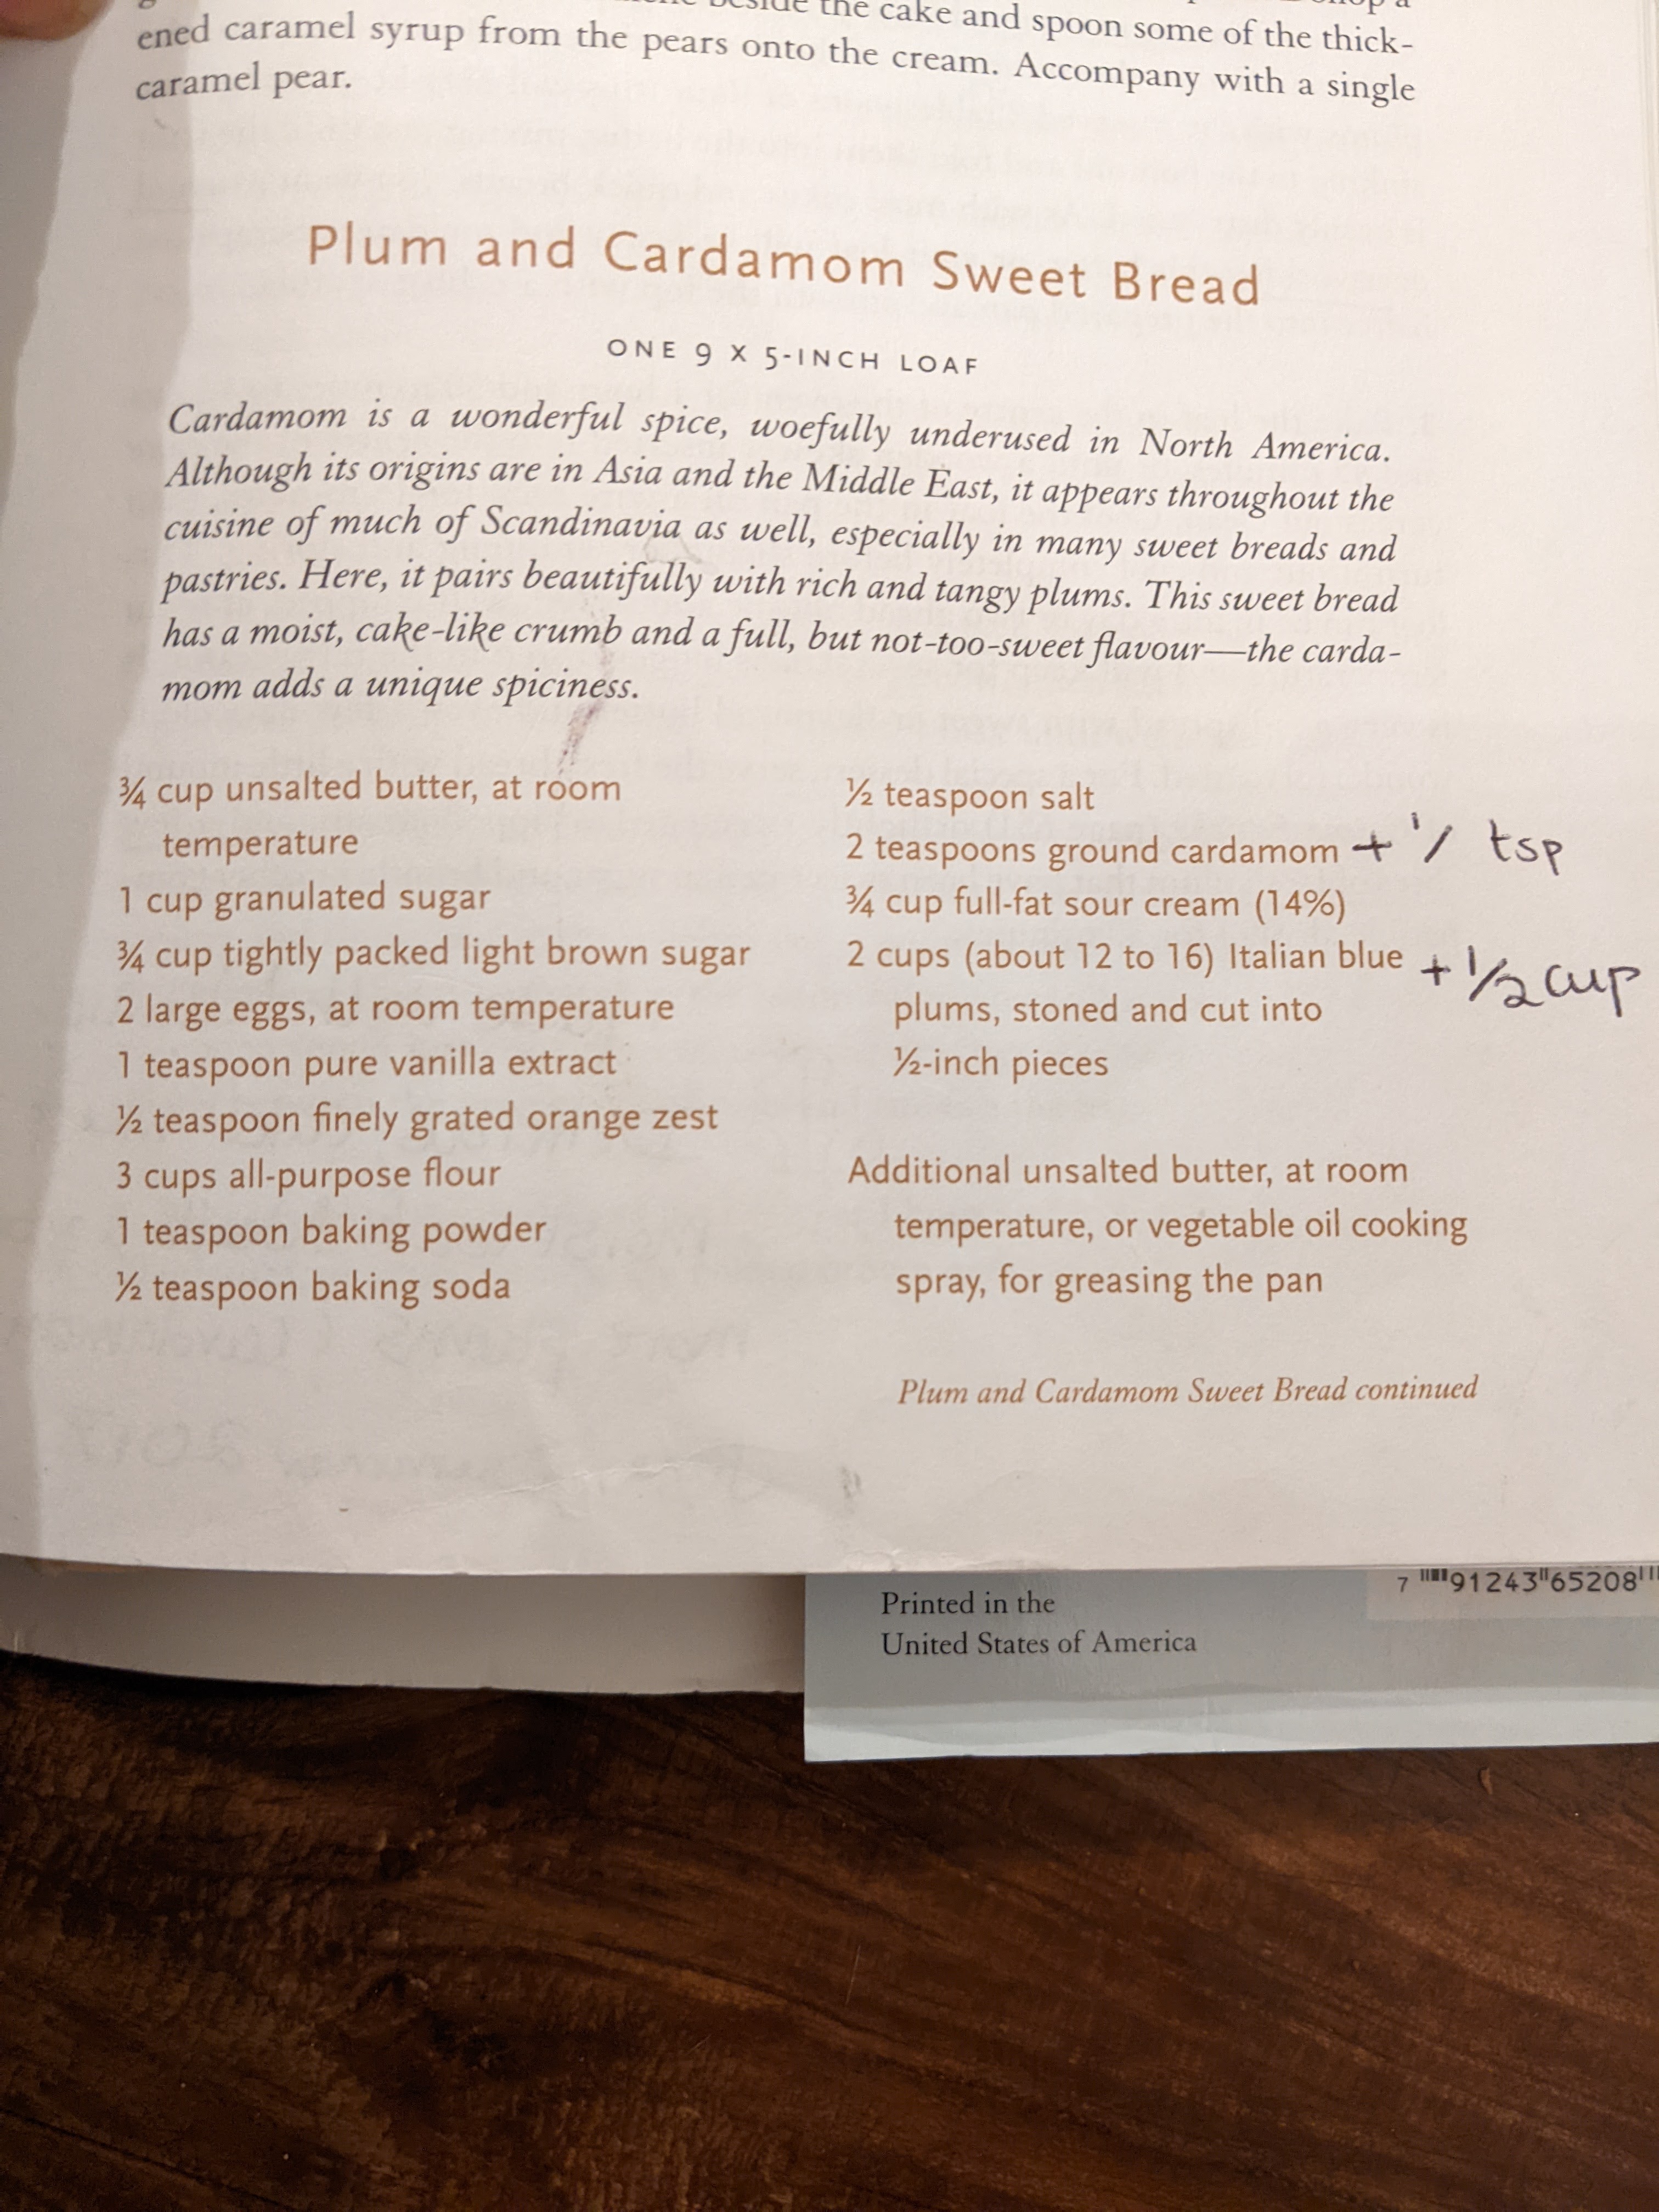 beside the cake and spoon some of the thick-
ened caramel syrup from the pears onto the cream. Accompany with a single
caramel pear.
Plum and Cardamom Sweet Bread
ONE 9 X 5-INCH LOAF
Cardamom is a wonderful spice, woefully underused in North America.
Although its origins are in Asia and the Middle East, it appears throughout the
cuisine of much of Scandinavia as well, especially in many sweet breads and
pastries. Here, it pairs beautifully with rich and tangy plums. This sweet bread
has a moist, cake-like crumb and a full, but not-too-sweet flavour—the carda-
mom adds a unique spiciness.
¾ cup unsalted butter, at room
temperature
1 cup granulated sugar
¾ cup tightly packed light brown sugar
2 large eggs, at room temperature
1 teaspoon pure vanilla extract
½ teaspoon finely grated orange zest
3 cups all-purpose flour
1 teaspoon baking powder
½ teaspoon baking soda
½ teaspoon salt
2 teaspoons ground cardamom + 1/ tsp
¾ cup full-fat sour cream (14%)
2 cups (about 12 to 16) Italian blue + ½ cup
plums, stoned and cut into
½-inch pieces
Additional unsalted butter, at room
temperature, or vegetable oil cooking
spray, for greasing the pan
Plum and Cardamom Sweet Bread continued
Printed in the
United States of America
7 91243 65208